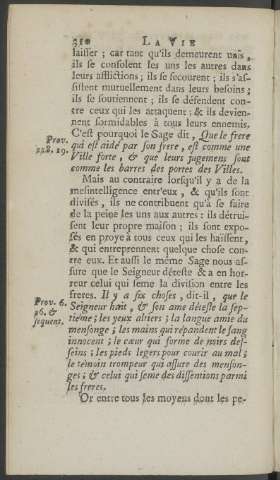 310 LA VIE
laisser ; car tant qu'ils demeurent unis,
ils se consolent les uns les autres dans
leurs afflictions ; ils se secourent ; ils s'as-
sistent mutuellement dans leurs besoins ;
ils se soutiennent ; ils se défendent con-
tre ceux qui les attaquent : & ils devien-
nent formidables à tous leurs ennemis.
C'est pourquoi le Sage dit, Que le frere
Prov.
qui est aidé par son frere, est comme une
Ville forte, & que leurs jugemens sont
comme les barres des portes des Villes.
Mais au contraire lorsqu'il y a de la
mesintelligence entr'eux, & qu'ils sont
divisés, ils ne contribuent qu'à se faire
de la peine les uns aux autres : ils détrui-
sent leur propre maison ; ils sont expo-
sés en proye à tous ceux qui les haïssent,
& qui entreprennent quelque chose con-
tre eux. Et aussi le même Sage nous as-
sure que le Seigneur déteste & a en hor-
reur celui qui seme la division entre les
freres. Il y a six choses, dit-il, que le
Prov. 6.
Seigneur hait, & son ame déteste la sep-
16. &
tième ; les yeux altiers ; la langue amie du
sequent.
mensonge ; les mains qui répandent le sang
innocent ; le cœur qui forme de noirs des-
seins ; les pieds legers pour courir au mal ;
le témoin trompeur qui assure des menson-
ges ; & celui qui seme des dissentions parmi
les freres.
Or entre tous les moyens dont les pe-